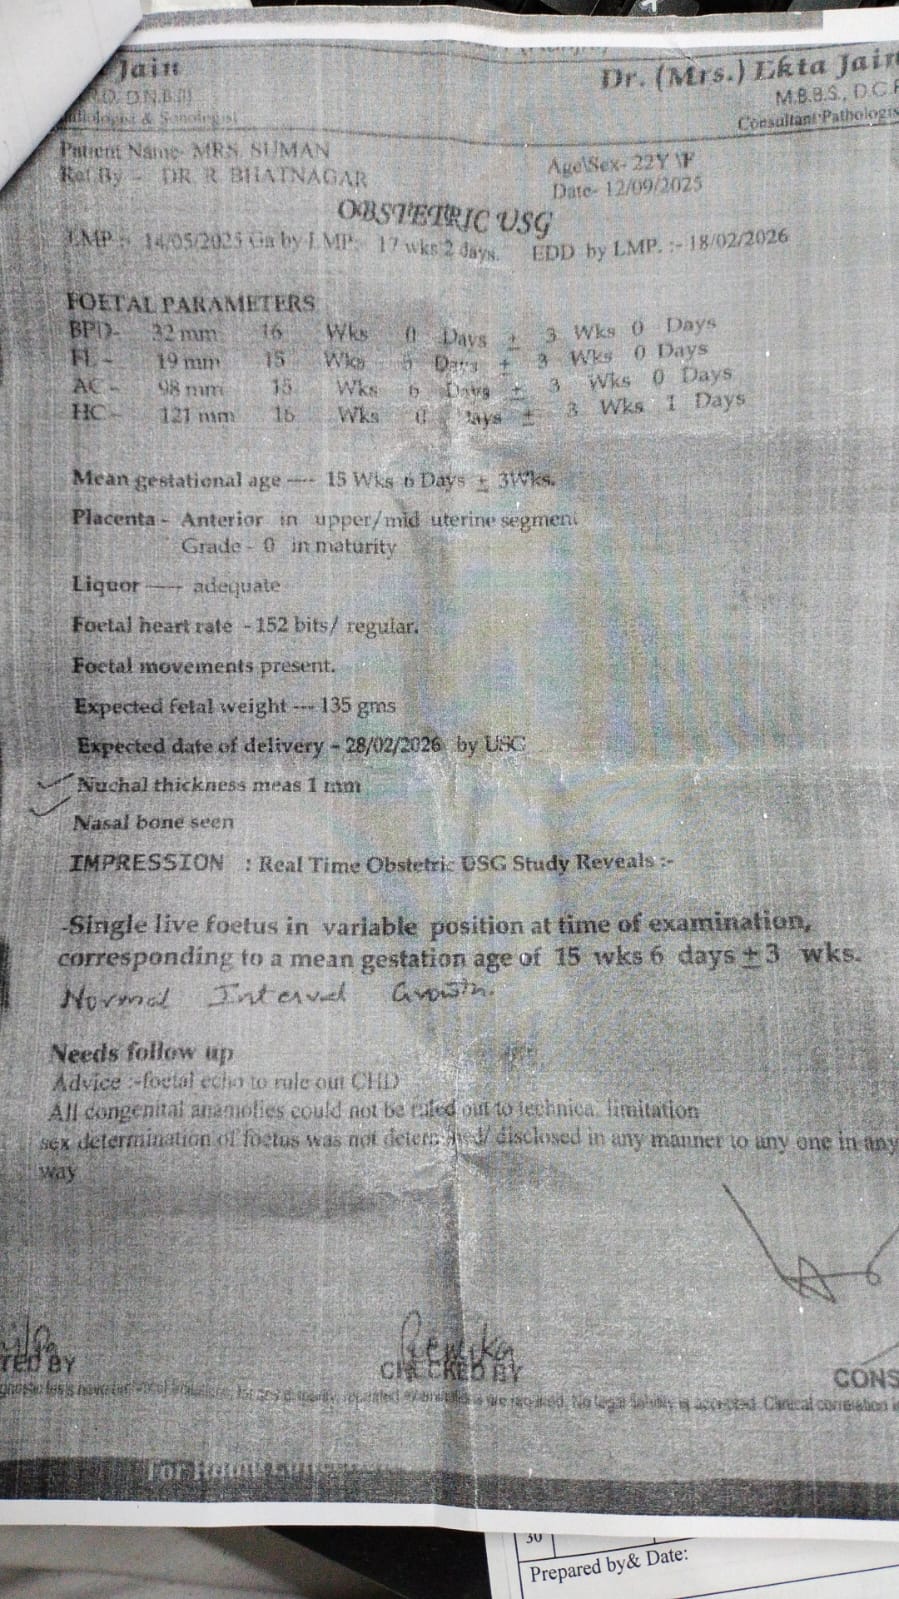 Jain
Dr. (Mrs.) Ekta Jain
D.N.B.
M.B.B.S., D.C.P
& Sonologist
Consultant Pathologis
Patient Name- MRS. SUMAN
Age\Sex- 22Y \F
Ref By - DR. R BHATNAGAR
Date- 12/09/2025
OBSTETRIC USG
LMP :- 14/05/2025 Ga by LMP:- 17 wks 2 days. EDD by LMP. :- 18/02/2026
FOETAL PARAMETERS
BPD- 32 mm 16 Wks 0 Days ± 3 Wks 0 Days
FL - 19 mm 15 Wks 5 Days ± 3 Wks 0 Days
AC - 98 mm 15 Wks 6 Days ± 3 Wks 0 Days
HC - 121 mm 16 Wks 0 Days ± 3 Wks 1 Days
Mean gestational age ---- 15 Wks 6 Days ± 3Wks.
Placenta - Anterior in upper/mid uterine segment
Grade - 0 in maturity
Liquor ---- adequate
Foetal heart rate - 152 bits/ regular.
Foetal movements present.
Expected fetal weight --- 135 gms
Expected date of delivery - 28/02/2026 by USG
Nuchal thickness meas 1 mm
Nasal bone seen
IMPRESSION : Real Time Obstetric USG Study Reveals :-
-Single live foetus in variable position at time of examination,
corresponding to a mean gestation age of 15 wks 6 days ± 3 wks.
Normal Interval Growth.
Needs follow up
Advice :-foetal echo to rule out CHD
All congenital anamolies could not be ruled out to technical limitation
sex determination of foetus was not determined/ disclosed in any manner to any one in any
way
TED BY
CHECKED BY
CONS
are required. No legal liability is accepted. Clinical correlation
For Home
30
Prepared by& Date: